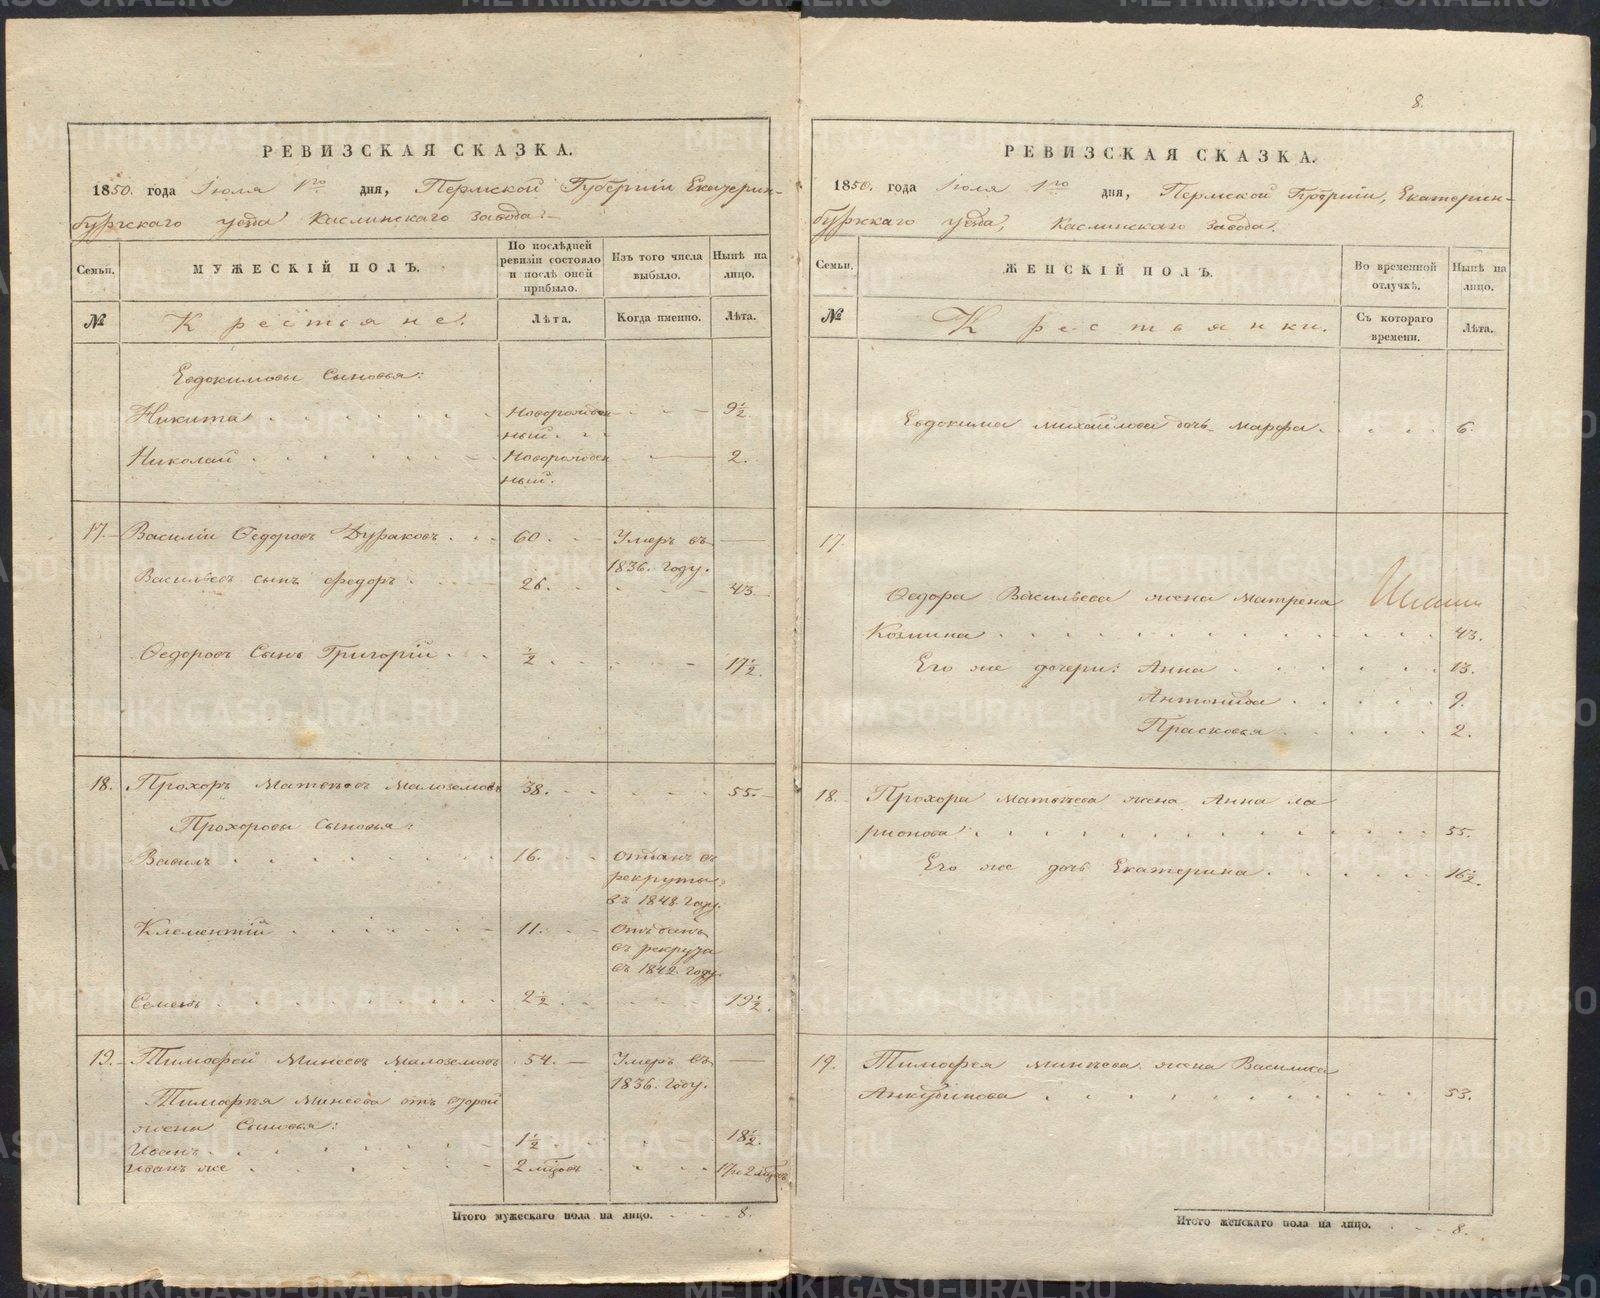 РЕВИЗСКАЯ СКАЗКА.
1850. года Іюля 1го дня, Пермской Губерніи Екатерин-
бургскаго уезда Каслинскаго завода.
Семьи.
МУЖЕСКІЙ ПОЛЪ.
По послѣдней ревизіи состояло и послѣ оной прибыло.
Изъ того числа выбыло.
Нынѣ на лицо.
№
Крестьяне.
Лѣта.
Когда именно.
Лѣта.
Евдокимовы сыновья:
Никита . . . . . . Новорожден- . . . 9½.
ный. . .
Николай . . . . . . Новорожден 2.
ный.
17. Василіи Ѳедоровъ Дураковъ . . . 60. . . Умеръ въ —
1836. году.
Васильевъ сынъ федоръ . . . 26. . . . 43.
Ѳедоровъ Сынъ Григорій . . ½ . . . 17½.
18. Прохоръ Матвѣевъ Малоземовъ 38. . . . 55.
Прохоровы Сыновья:
Василъ . . . . . . 16. . . отданъ въ
рекруты
въ 1848. году.
Клементій . . . . . . 11. . . Отъданъ
въ рекрута
въ 1842. году.
Семенъ . . . . . . 2½ . . . 19½.
19. Тимофей Минеевъ Малоземовъ . 54. — Умеръ въ —
1836. Году.
Тимофѣя Минеева отъ второй
жены Сыновья:
Иванъ . . . . . . 1½ . . . 18½.
Иванъ же . . . . . . 2 мѣсяц. . . . 17 и 2 мѣсяц.
Итого мужескаго пола на лицо. . . . 8.
8.
РЕВИЗСКАЯ СКАЗКА.
1850. года Іюля 1го дня, Пермской Губерніи, Екатерин-
бургскаго уезда, Каслинскаго завода.
Семьи.
ЖЕНСКІЙ ПОЛЪ.
Во временной отлучкѣ.
Нынѣ на лицо.
№
Крестьянки.
Съ котораго времени.
Лѣта.
Евдокима Михайлова дочь Марфа. . . . . 6.
17.
Ѳедора Васильева жена Матрена
Козмина . . . . . . 43.
Его же дочери: Анна . . . . . 13.
Антонида . . . . . 9.
Прасковья . . . . . 2.
18. Прохора Матвѣева жена Анна Ла
рионова . . . . . . 55.
Его же дочь Екатерина . . . . . 16½.
19. Тимофея Минѣева жена Василиса
Анкудинова . . . . . . 53.
Итого женскаго пола на лицо. . . . 8.
METRIKI.GASO-URAL.RU